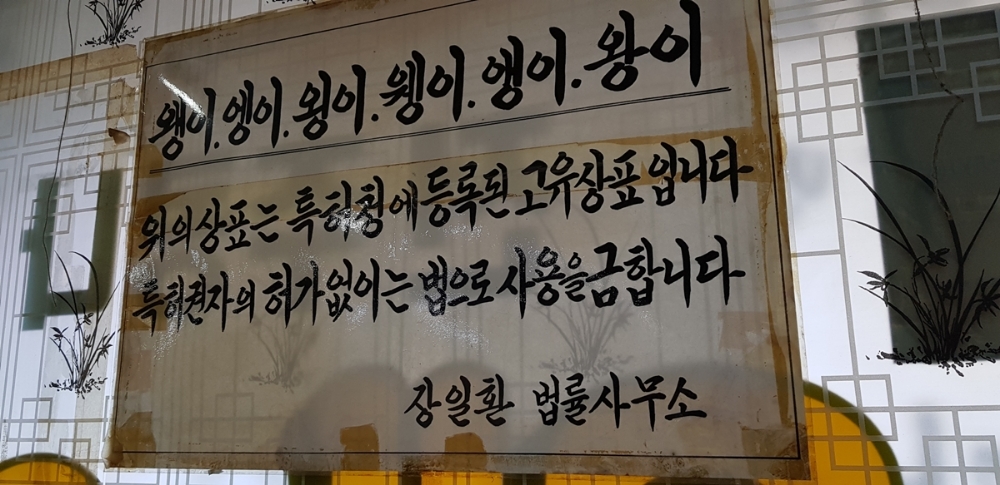 왱이.엥이.욍이.웽이.앵이.왕이
위의상표는 특허청에등록된 고유상표입니다
특허권자의 허가없이는 법으로 사용을금합니다
장일환 법률사무소